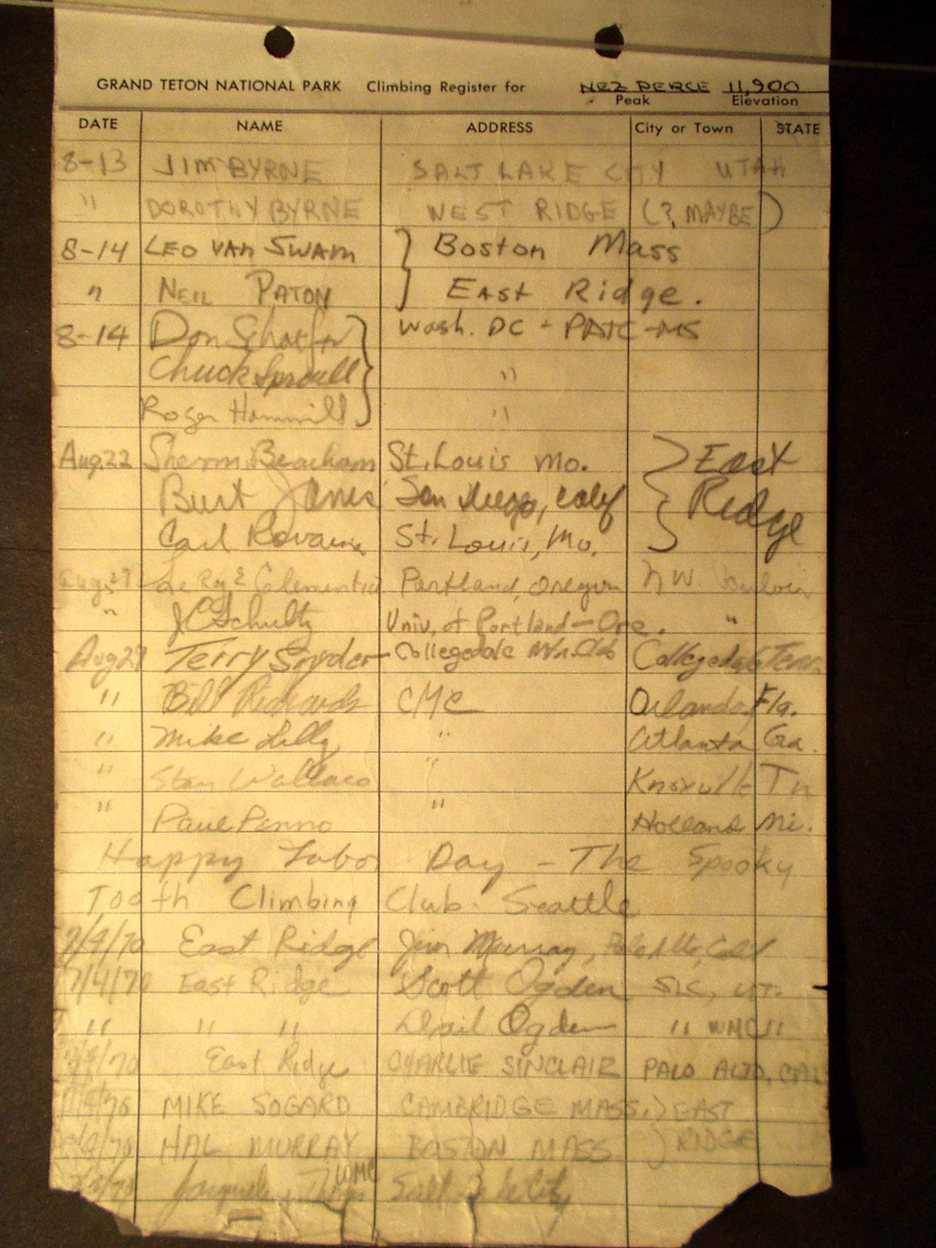 GRAND TETON NATIONAL PARK Climbing Register for NEZ PERCE 11,900
Peak Elevation
DATE NAME ADDRESS City or Town STATE
8-13 JIM BYRNE SALT LAKE CITY UTAH
" DOROTHY BYRNE WEST RIDGE (?, MAYBE)
8-14 LEO VAN SWAM } Boston Mass
" NEIL PATON East Ridge.
8-14 Don Wash. DC - PATC-MS
Chuck Sproull } "
Roger Hammill "
Aug. 22 Sherm. Beacham St. Louis Mo. } East
Burt Jones San Diego, Calif } Ridge
Carl St. Louis, Mo.
Aug 27 Le Roy E Portland, Oregon NW.
" JC Schultz Univ. of Portland - Ore. "
Aug 29 Terry Snyder - Collegedale Mtn. Club Collegedale Tenn.
" Bill Richards CMC Orlando, Fla.
" Mike Lilly " Atlanta Ga.
" Stan Wallace " Knoxville Tn
" Paul Penno " Holland Mi.
Happy Labor Day - The Spooky
Tooth Climbing Club - Seattle
9/4/70 East Ridge Jim Murray, Palo Alto, Calif
9/4/70 East Ridge Scott Ogden SLC, UT.
" " " Ogden " WMC "
/70 East Ridge CHARLIE SINCLAIR PALO ALTO, CAL
MIKE SOGARD CAMBRIDGE MASS. } EAST
HAL MURRAY BOSTON MASS } RIDGE
WMC Salt Lake City